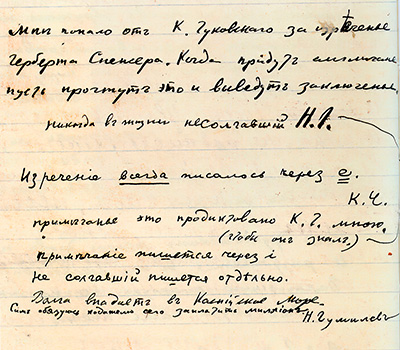 Мнѣ попало отъ К. Чуковскаго за изрѣченье
Герберта Спенсера. Когда прійдутъ англичане
пусть прочтутъ это и выведутъ заключенье.
никогда въ жизни не солгавшій Н. Г.
Изреченіе всегда писалось через е.
К. Ч.
примечанье это продиктовано К. Ч. мною.
(чтобы онъ зналъ)
примѣчаніе пишется через і
не солгавшій пишется отдѣльно.
Волга впадаетъ въ Каспійское море.
Симъ обязуюсь подателю сего заплатить милліонъ
Н. Гумилевъ